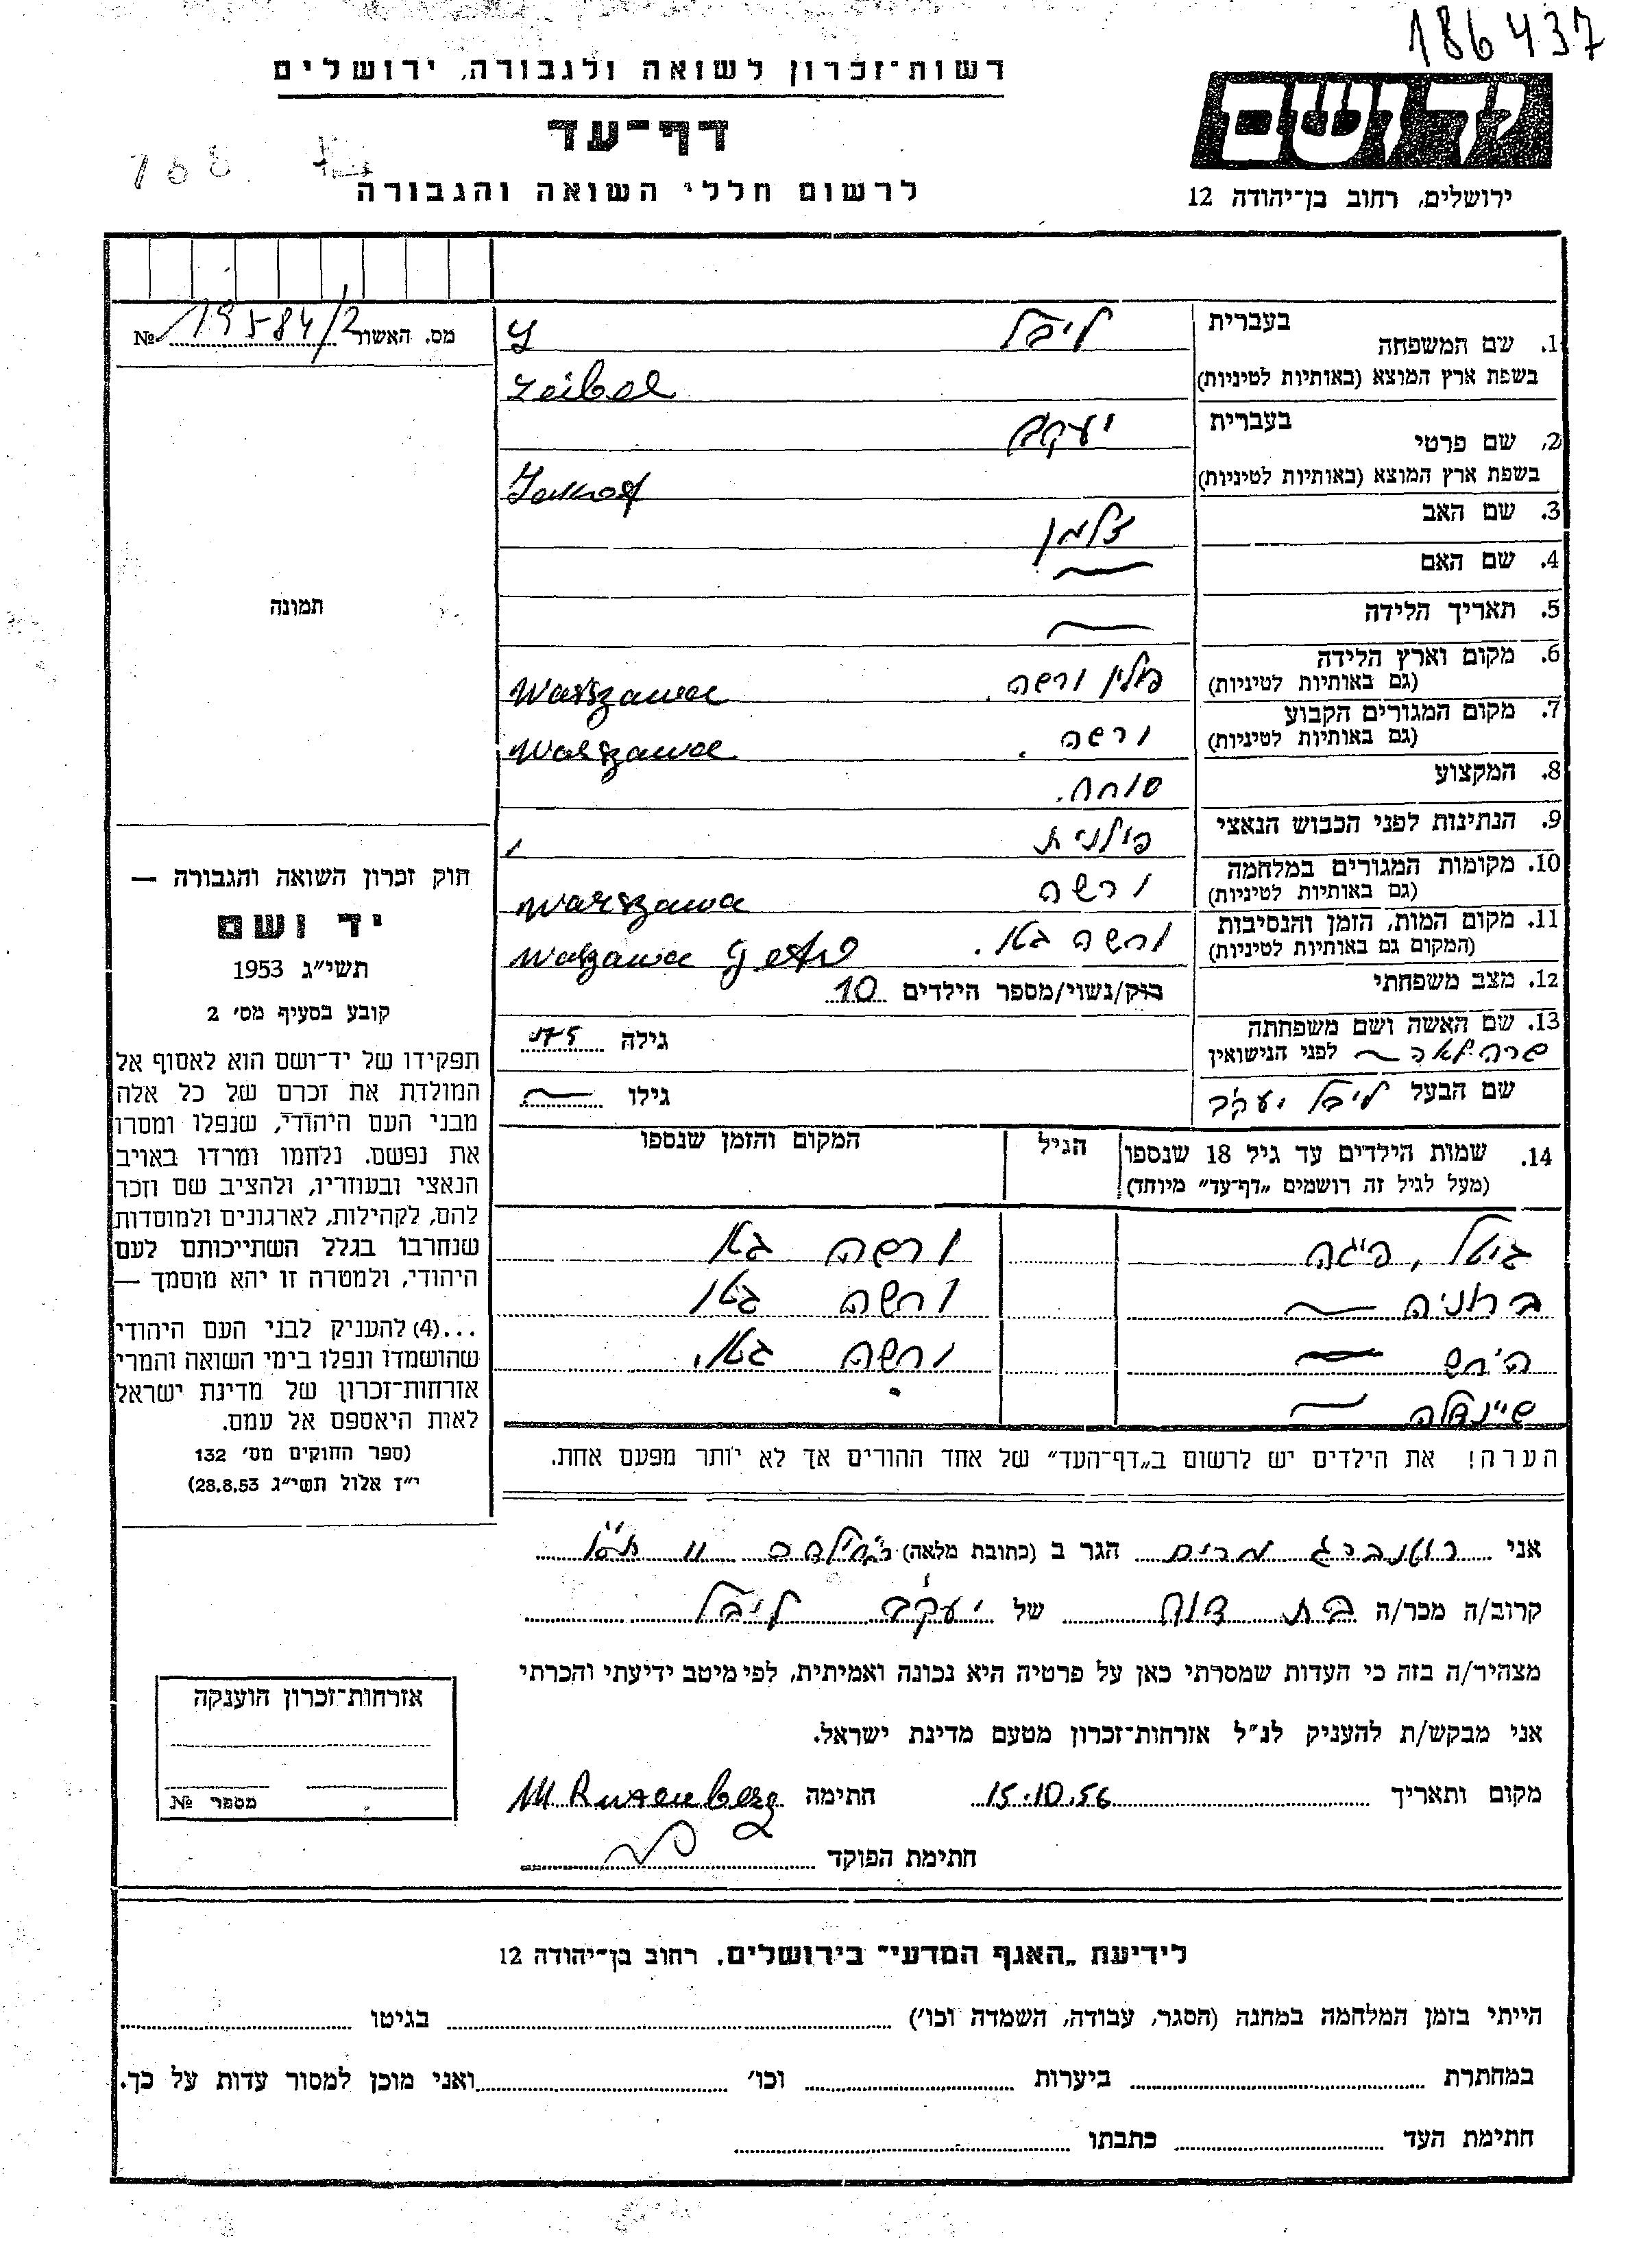 186437
רשות־זכרון לשואה ולגבורה, ירושלים
יד ושם
דף־עד
168
לרשום חללי השואה והגבורה
ירושלים, רחוב בן־יהודה 12
מס. האשור 19584/2 №
1. שם המשפחה בעברית לייבל
בשפת ארץ המוצא (באותיות לטיניות) Leibel
2. שם פרטי בעברית יעקב
בשפת ארץ המוצא (באותיות לטיניות)
3. שם האב זלמן
4. שם האם —
5. תאריך הלידה —
6. מקום וארץ הלידה פולין ורשה. Warszawa
(גם באותיות לטיניות)
7. מקום המגורים הקבוע ורשה. Warszawa
(גם באותיות לטיניות)
8. המקצוע סוחר.
9. הנתינות לפני הכבוש הנאצי פולנית
10. מקומות המגורים במלחמה ורשה Warszawa
(גם באותיות לטיניות)
11. מקום המות, הזמן והנסיבות ורשה גטו. Warszawa Getto
(המקום גם באותיות לטיניות)
12. מצב משפחתי רוק/נשוי/מספר הילדים 10
13. שם האשה ושם משפחתה
לפני הנישואין שרה לאה — גילה 75
שם הבעל לייבל יעקב גילו —
14. שמות הילדים עד גיל 18 שנספו הגיל המקום והזמן שנספו
(מעל לגיל זה רושמים „דף־עד” מיוחד)
גיטל, פייגה ורשה גטו
ברוניה — ורשה גטו
הירש — ורשה גטו.
שיינדלה —
הערה! את הילדים יש לרשום ב„דף־העד” של אחד ההורים אך לא יותר מפעם אחת.
תמונה
חוק זכרון השואה והגבורה —
יד ושם
תשי״ג 1953
קובע בסעיף מס׳ 2
תפקידו של יד־ושם הוא לאסוף אל
המולדת את זכרם של כל אלה
מבני העם היהודי, שנפלו ומסרו
את נפשם. נלחמו ומרדו באויב
הנאצי ובעוזריו, ולהציב שם וזכר
להם, לקהילות, לארגונים ולמוסדות
שנחרבו בגלל השתייכותם לעם
היהודי, ולמטרה זו יהא מוסמך —
...(4) להעניק לבני העם היהודי
שהושמדו ונפלו בימי השואה והמרי
אזרחות־זכרון של מדינת ישראל
לאות היאספם אל עמם.
(ספר החוקים מס׳ 132
י״ז אלול תשי״ג 28.8.53)
אני רוטנברג מרים הגר ב (כתובת מלאה) 11 ת״א
קרוב/ה מכר/ה בת דוד של יעקב לייבל
מצהיר/ה בזה כי העדות שמסרתי כאן על פרטיה היא נכונה ואמיתית, לפי מיטב ידיעתי והכרתי
אני מבקש/ת להעניק לנ״ל אזרחות־זכרון מטעם מדינת ישראל.
מקום ותאריך 15.10.56 חתימה
חתימת הפוקד
אזרחות־זכרון הוענקה
מספר №
לידיעת „האגף המדעי” בירושלים. רחוב בן־יהודה 12
הייתי בזמן המלחמה במחנה (הסגר, עבודה, השמדה וכו׳) בגיטו
במחתרת ביערות וכו׳ ואני מוכן למסור עדות על כך.
חתימת העד כתבתו